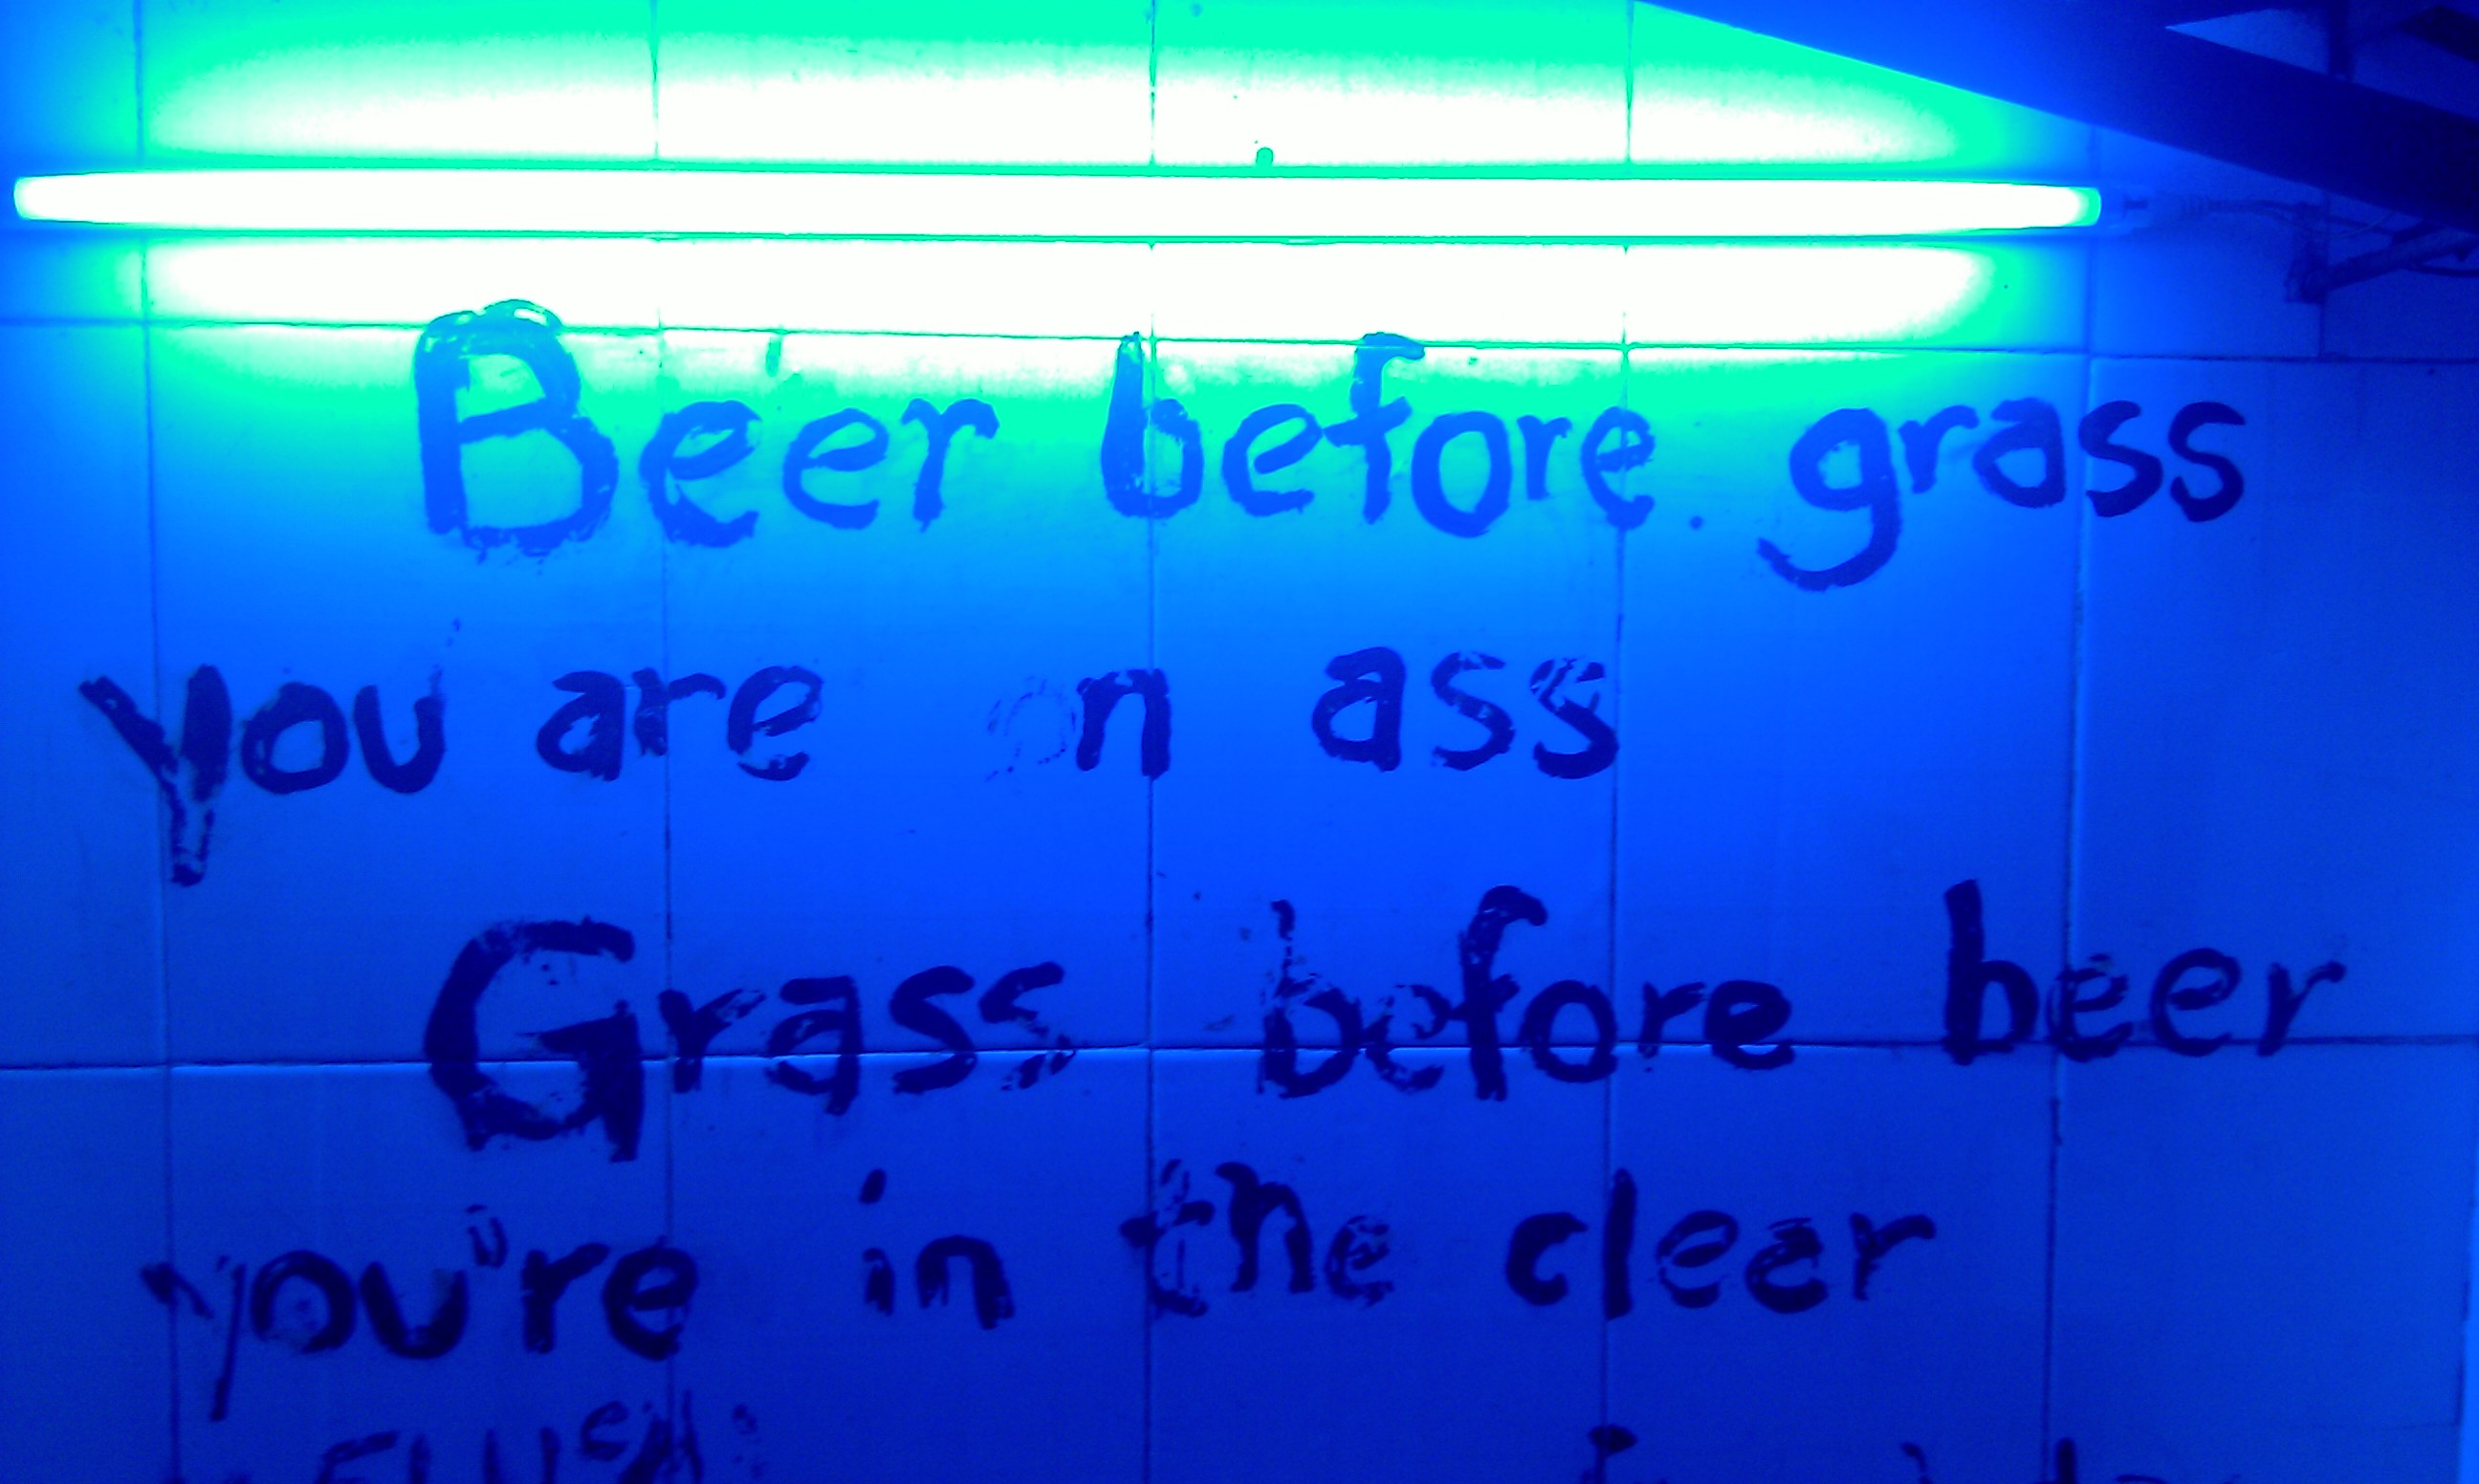 Beer before grass
you are n ass
Grass before beer
you're in the clear